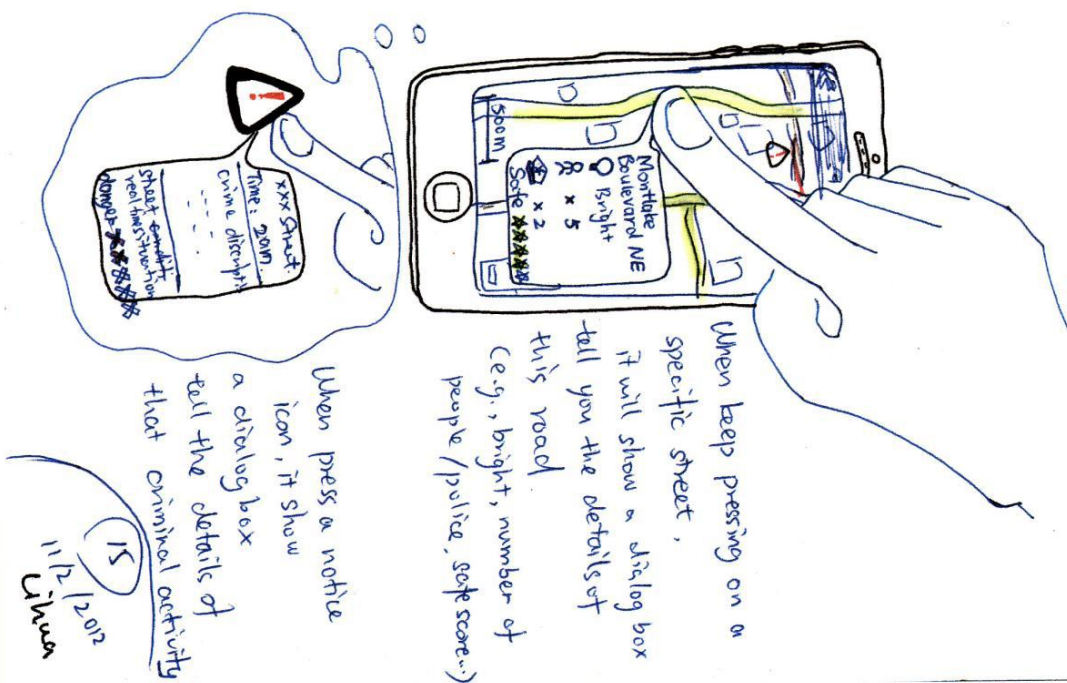 500m
Montlake
Boulevard NE
Bright
x 5
x 2
Safe ☆☆☆☆☆
When keep pressing on a
specific street,
it will show a dialog box
tell you the details of
this road
(e.g., bright, number of
people/police, safe score...)
!
xxx Street.
Time: 2am.
crime discriptio
real time situation
danger
When press a notice
icon, it show
a dialog box
tell the details of
that criminal activity
15
11/2/2012
Lihua